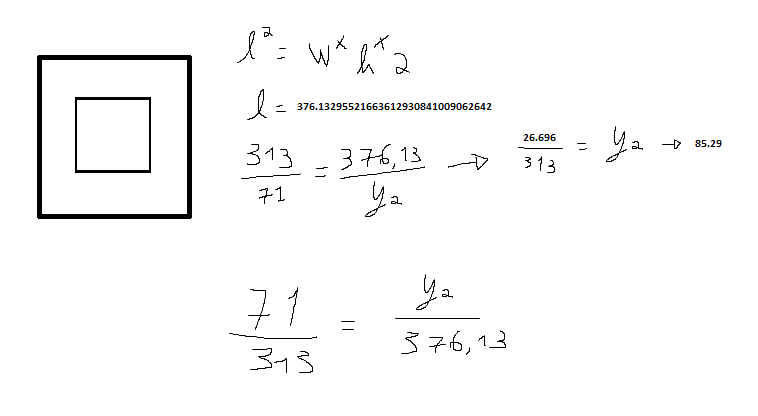 l² = wˣ hˣ 2
l = 376.13295521663612930841009062642
313/71 = 376,13/y₂ → 26.696/313 = y₂ → 85.29
71/313 = y₂/376,13